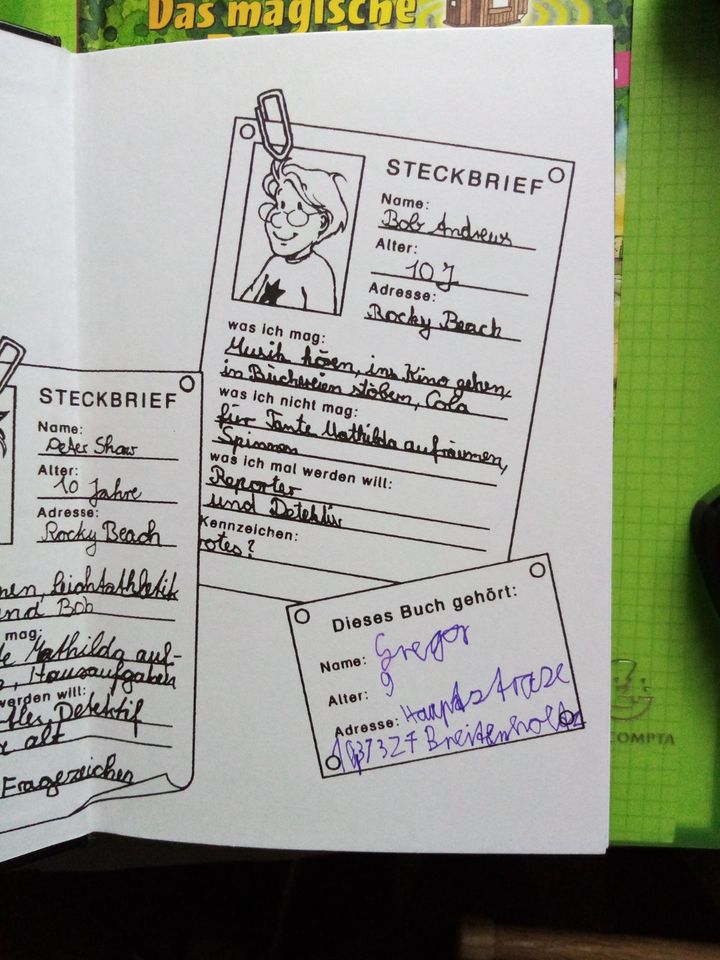 Das magische
STECKBRIEF
Name:
Bob Andrews
Alter:
10 J
Adresse:
Rocky Beach
was ich mag:
Musik hören, ins Kino gehen,
in Büchereien stöbern, Cola
was ich nicht mag:
für Tante Mathilda aufräumen,
Spinnen
was ich mal werden will:
Reporter
und Detektiv
Kennzeichen:
rotes?
STECKBRIEF
Name:
Peter Shaw
Alter:
10 Jahre
Adresse:
Rocky Beach
men, Leichtathletik
und Bob
mag:
te Mathilda auf-
, Hausaufgaben
werden will:
Detektif
r alt
Fragezeichen
Dieses Buch gehört:
Name: Gregor
Alter: 9
Adresse: Hauptstrase
37327 Breitenholz
COMPTA